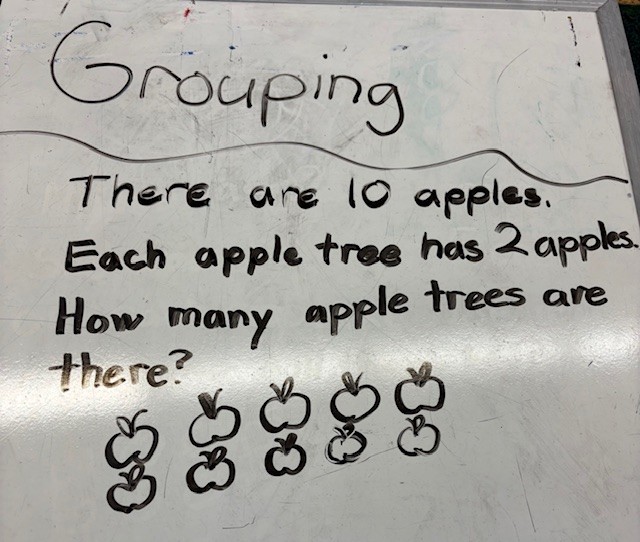 Grouping
There are 10 apples.
Each apple tree has 2 apples.
How many apple trees are
there?